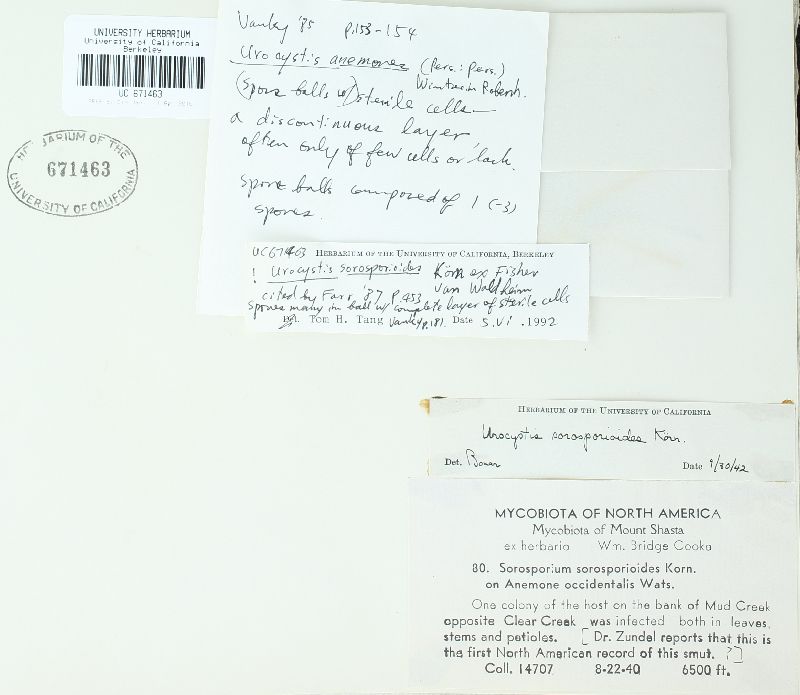 UNIVERSITY HERBARIUM
University of California
Berkeley
UC 671463
HERBARIUM OF THE
671463
UNIVERSITY OF CALIFORNIA
Vanky '85 p.153-154
Urocystis anemones (Pers.: Pers.)
Winter in Rabenh.
(Spore balls w/) sterile cells—
a discontinuous layer
often only of few cells or lack.
Spore balls composed of 1 (-3)
spores.
UC671463 HERBARIUM OF THE UNIVERSITY OF CALIFORNIA, BERKELEY
! Urocystis sorosporioides Körn ex Fisher
Van Waldheim
cited by Farr '87 p.453
spores many in ball w/ complete layer of sterile cells
Det. Tom H. Tang Vanky p.181. Date 5.vi.1992
HERBARIUM OF THE UNIVERSITY OF CALIFORNIA
Urocystis sorosporioides Körn.
Det. Bonar Date 9/30/42
MYCOBIOTA OF NORTH AMERICA
Mycobiota of Mount Shasta
ex herbario Wm. Bridge Cooke
80. Sorosporium sorosporioides Korn.
on Anemone occidentalis Wats.
One colony of the host on the bank of Mud Creek
opposite Clear Creek was infected both in leaves,
stems and petioles. [Dr. Zundel reports that this is
the first North American record of this smut. ?]
Coll. 14707 8-22-40 6500 ft.